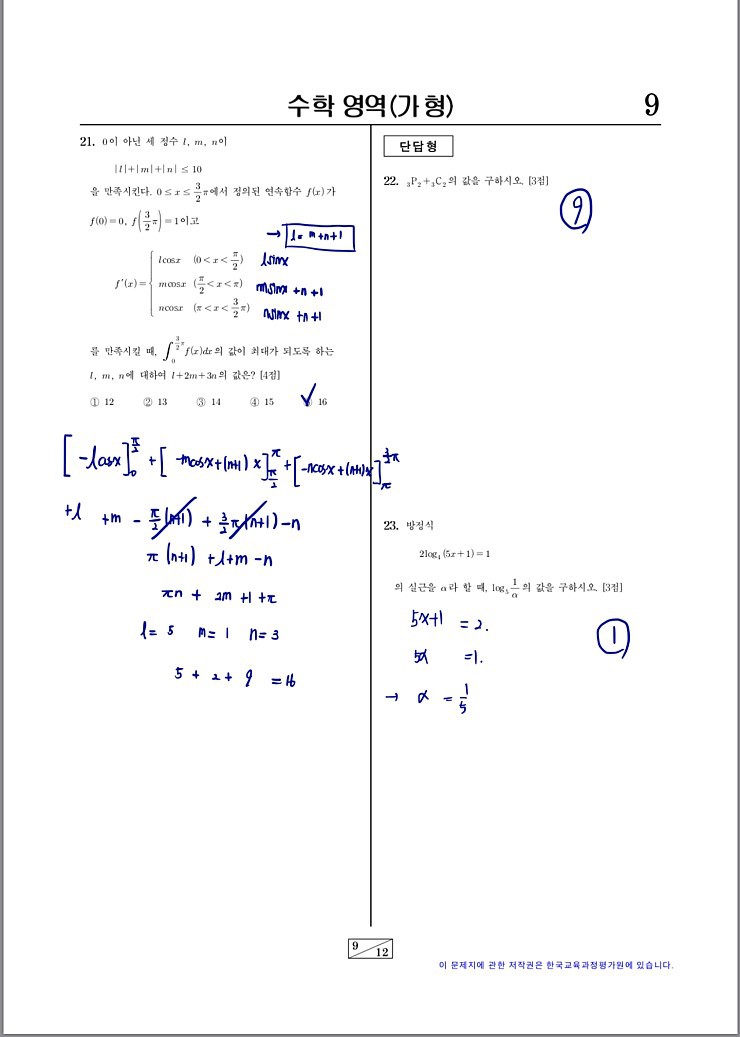 수학 영역(가형)
9
21. 0이 아닌 세 정수 l, m, n이
|l|+|m|+|n| ≤ 10
을 만족시킨다. 0≤x≤3/2π에서 정의된 연속함수 f(x)가
f(0)=0, f(3/2π)=1이고
→ l= m+n+1
f′(x)= { lcosx (0<x<π/2) lsinx
mcosx (π/2<x<π) msinx +n+1
ncosx (π<x<3/2π) nsinx +n+1
를 만족시킬 때, ∫₀^(3/2π) f(x)dx의 값이 최대가 되도록 하는
l, m, n에 대하여 l+2m+3n의 값은? [4점]
① 12 ② 13 ③ 14 ④ 15 ⑤ 16
[-lcosx]₀^(π/2) + [-mcosx+(n+1)x]_(π/2)^π + [-ncosx+(n+1)x]_π^(3/2π)
+l +m - π/2(n+1) + 3/2π(n+1) -n
π(n+1) +l+m-n
πn + 2m +1+π
l= 5 m= 1 n= 3
5 + 2 + 9 = 16
단답형
22. ₃P₂+₃C₂의 값을 구하시오. [3점]
9
23. 방정식
2log₄(5x+1)=1
의 실근을 α라 할 때, log₅ 1/α의 값을 구하시오. [3점]
5x+1 = 2.
5α =1.
1
→ α = 1/5
9/12
이 문제지에 관한 저작권은 한국교육과정평가원에 있습니다.